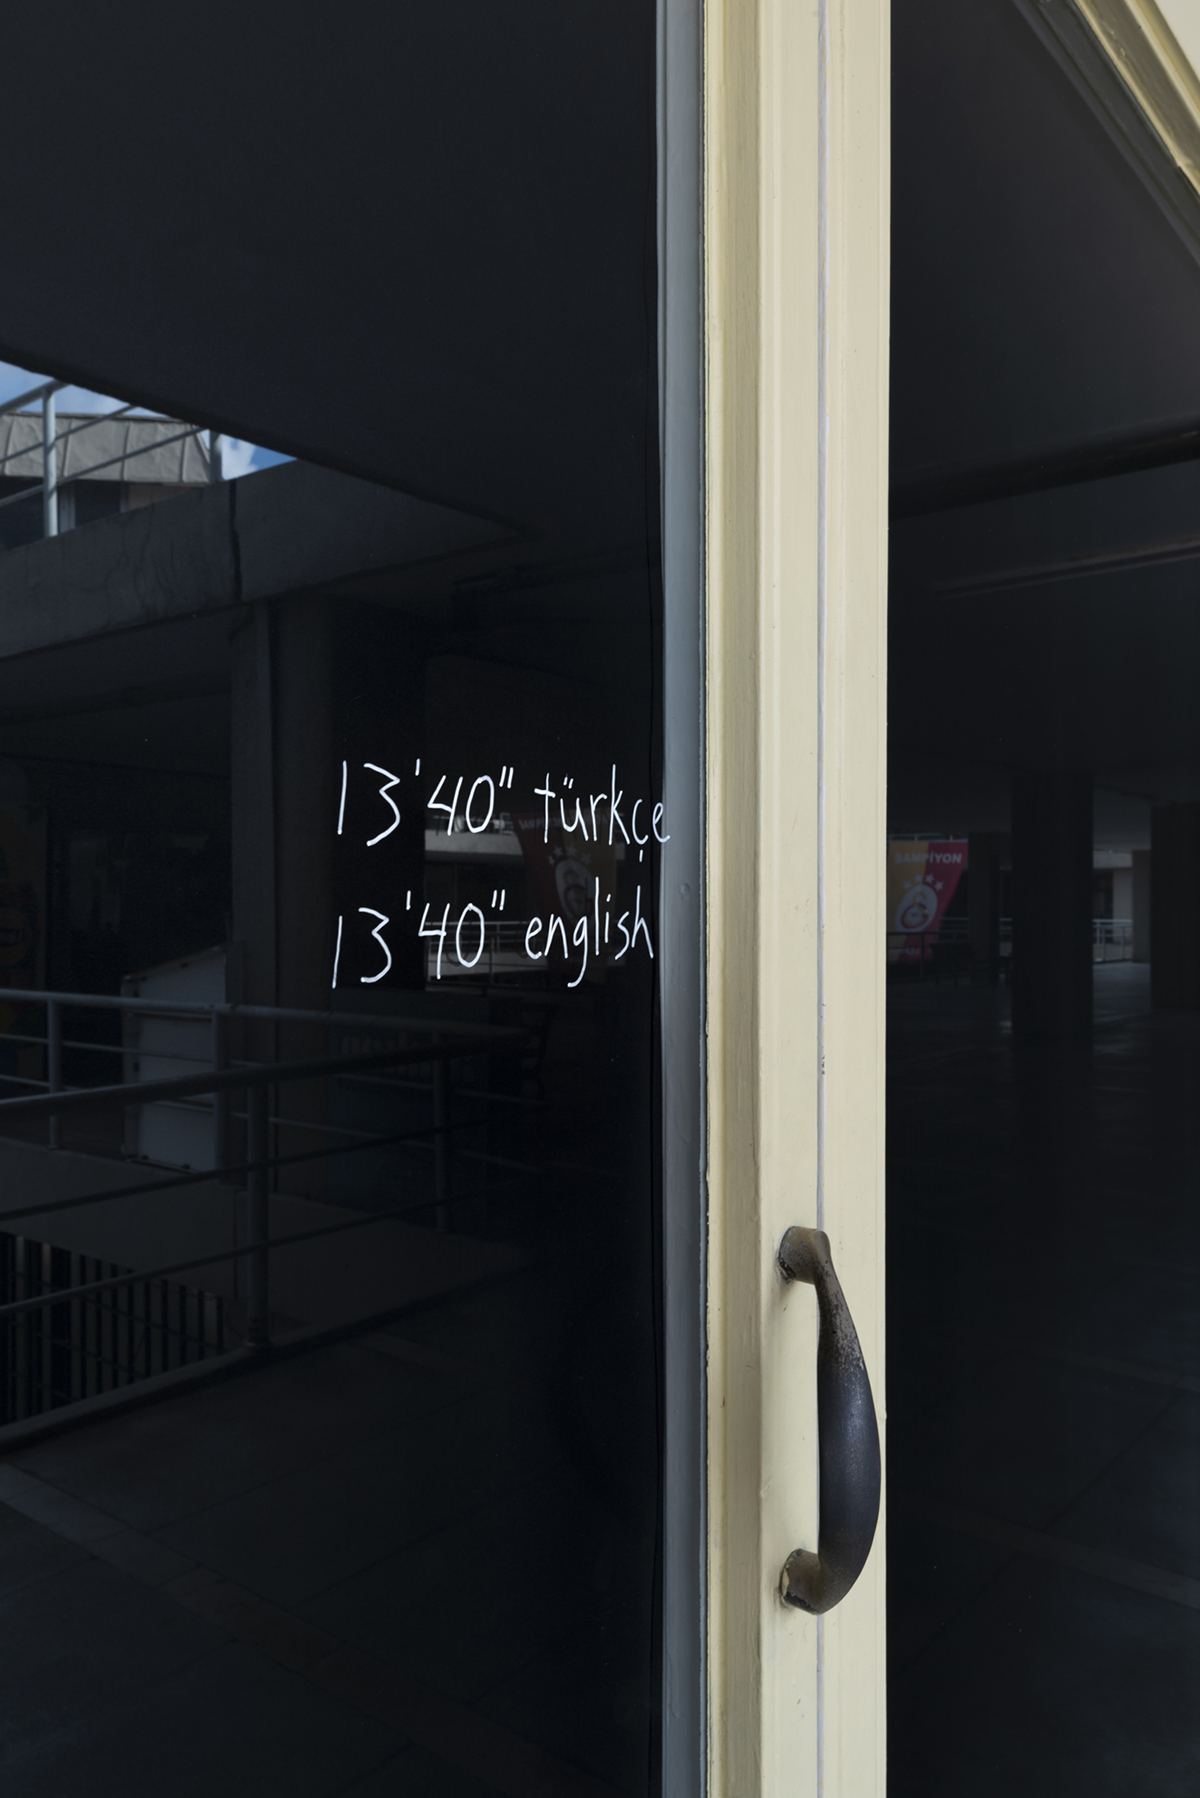 13'40" türkçe
13'40" english
ŞAMPİYON